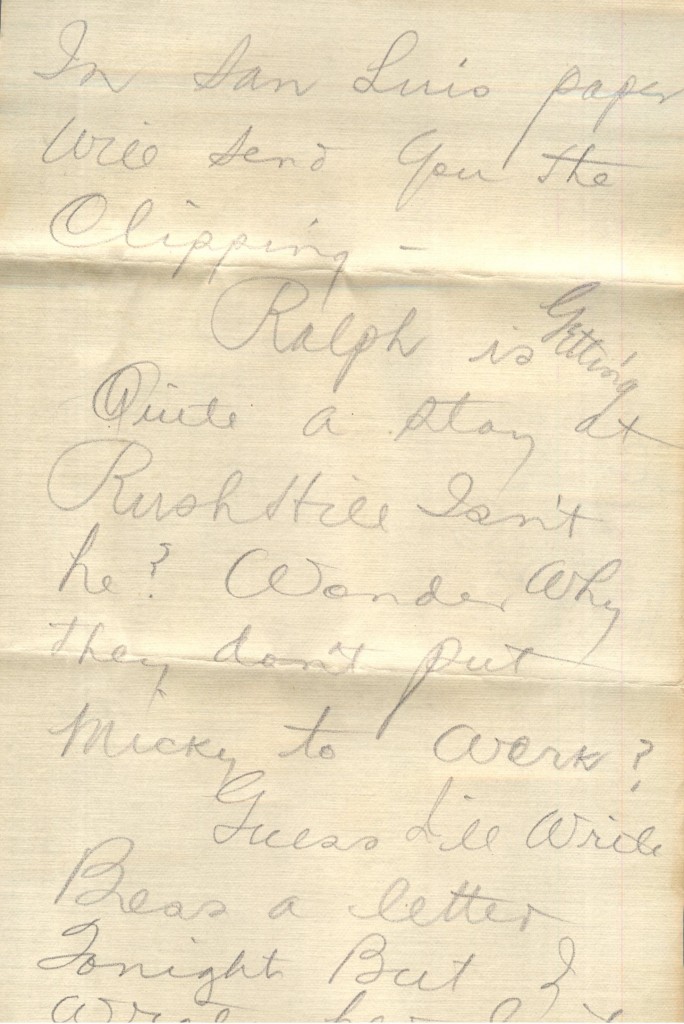 In San Luis paper
Will send you the
Clipping -
Ralph is Getting
Quite a stay at
Rush Hill Isn't
he? Wonder Why
they don't put
Micky to Work?
Guess I'll Write
Bess a letter
Tonight But I